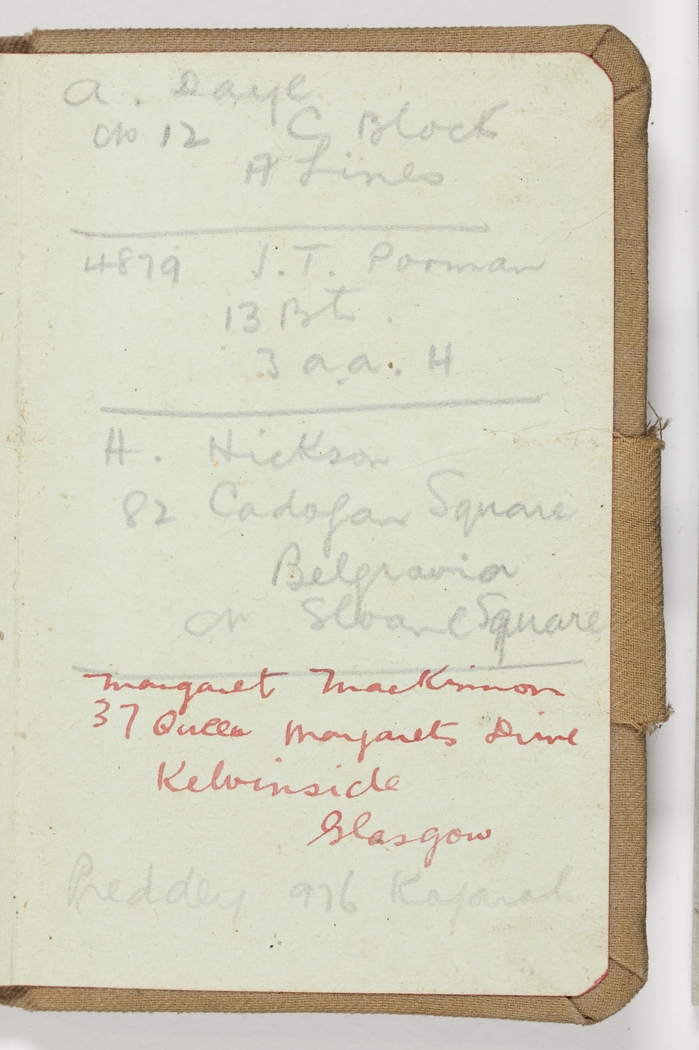 A. Dayl
No 12 C Block
A Lines
4879 J.T. Porman
13 Bt.
3 a.a. H
H. Hickson
82 Cadogan Square
Belgravia
or Sloane Square
Margaret MacKinnon
37 Queen Margarets Drive
Kelvinside
Glasgow
Preddey 976 Kogarah